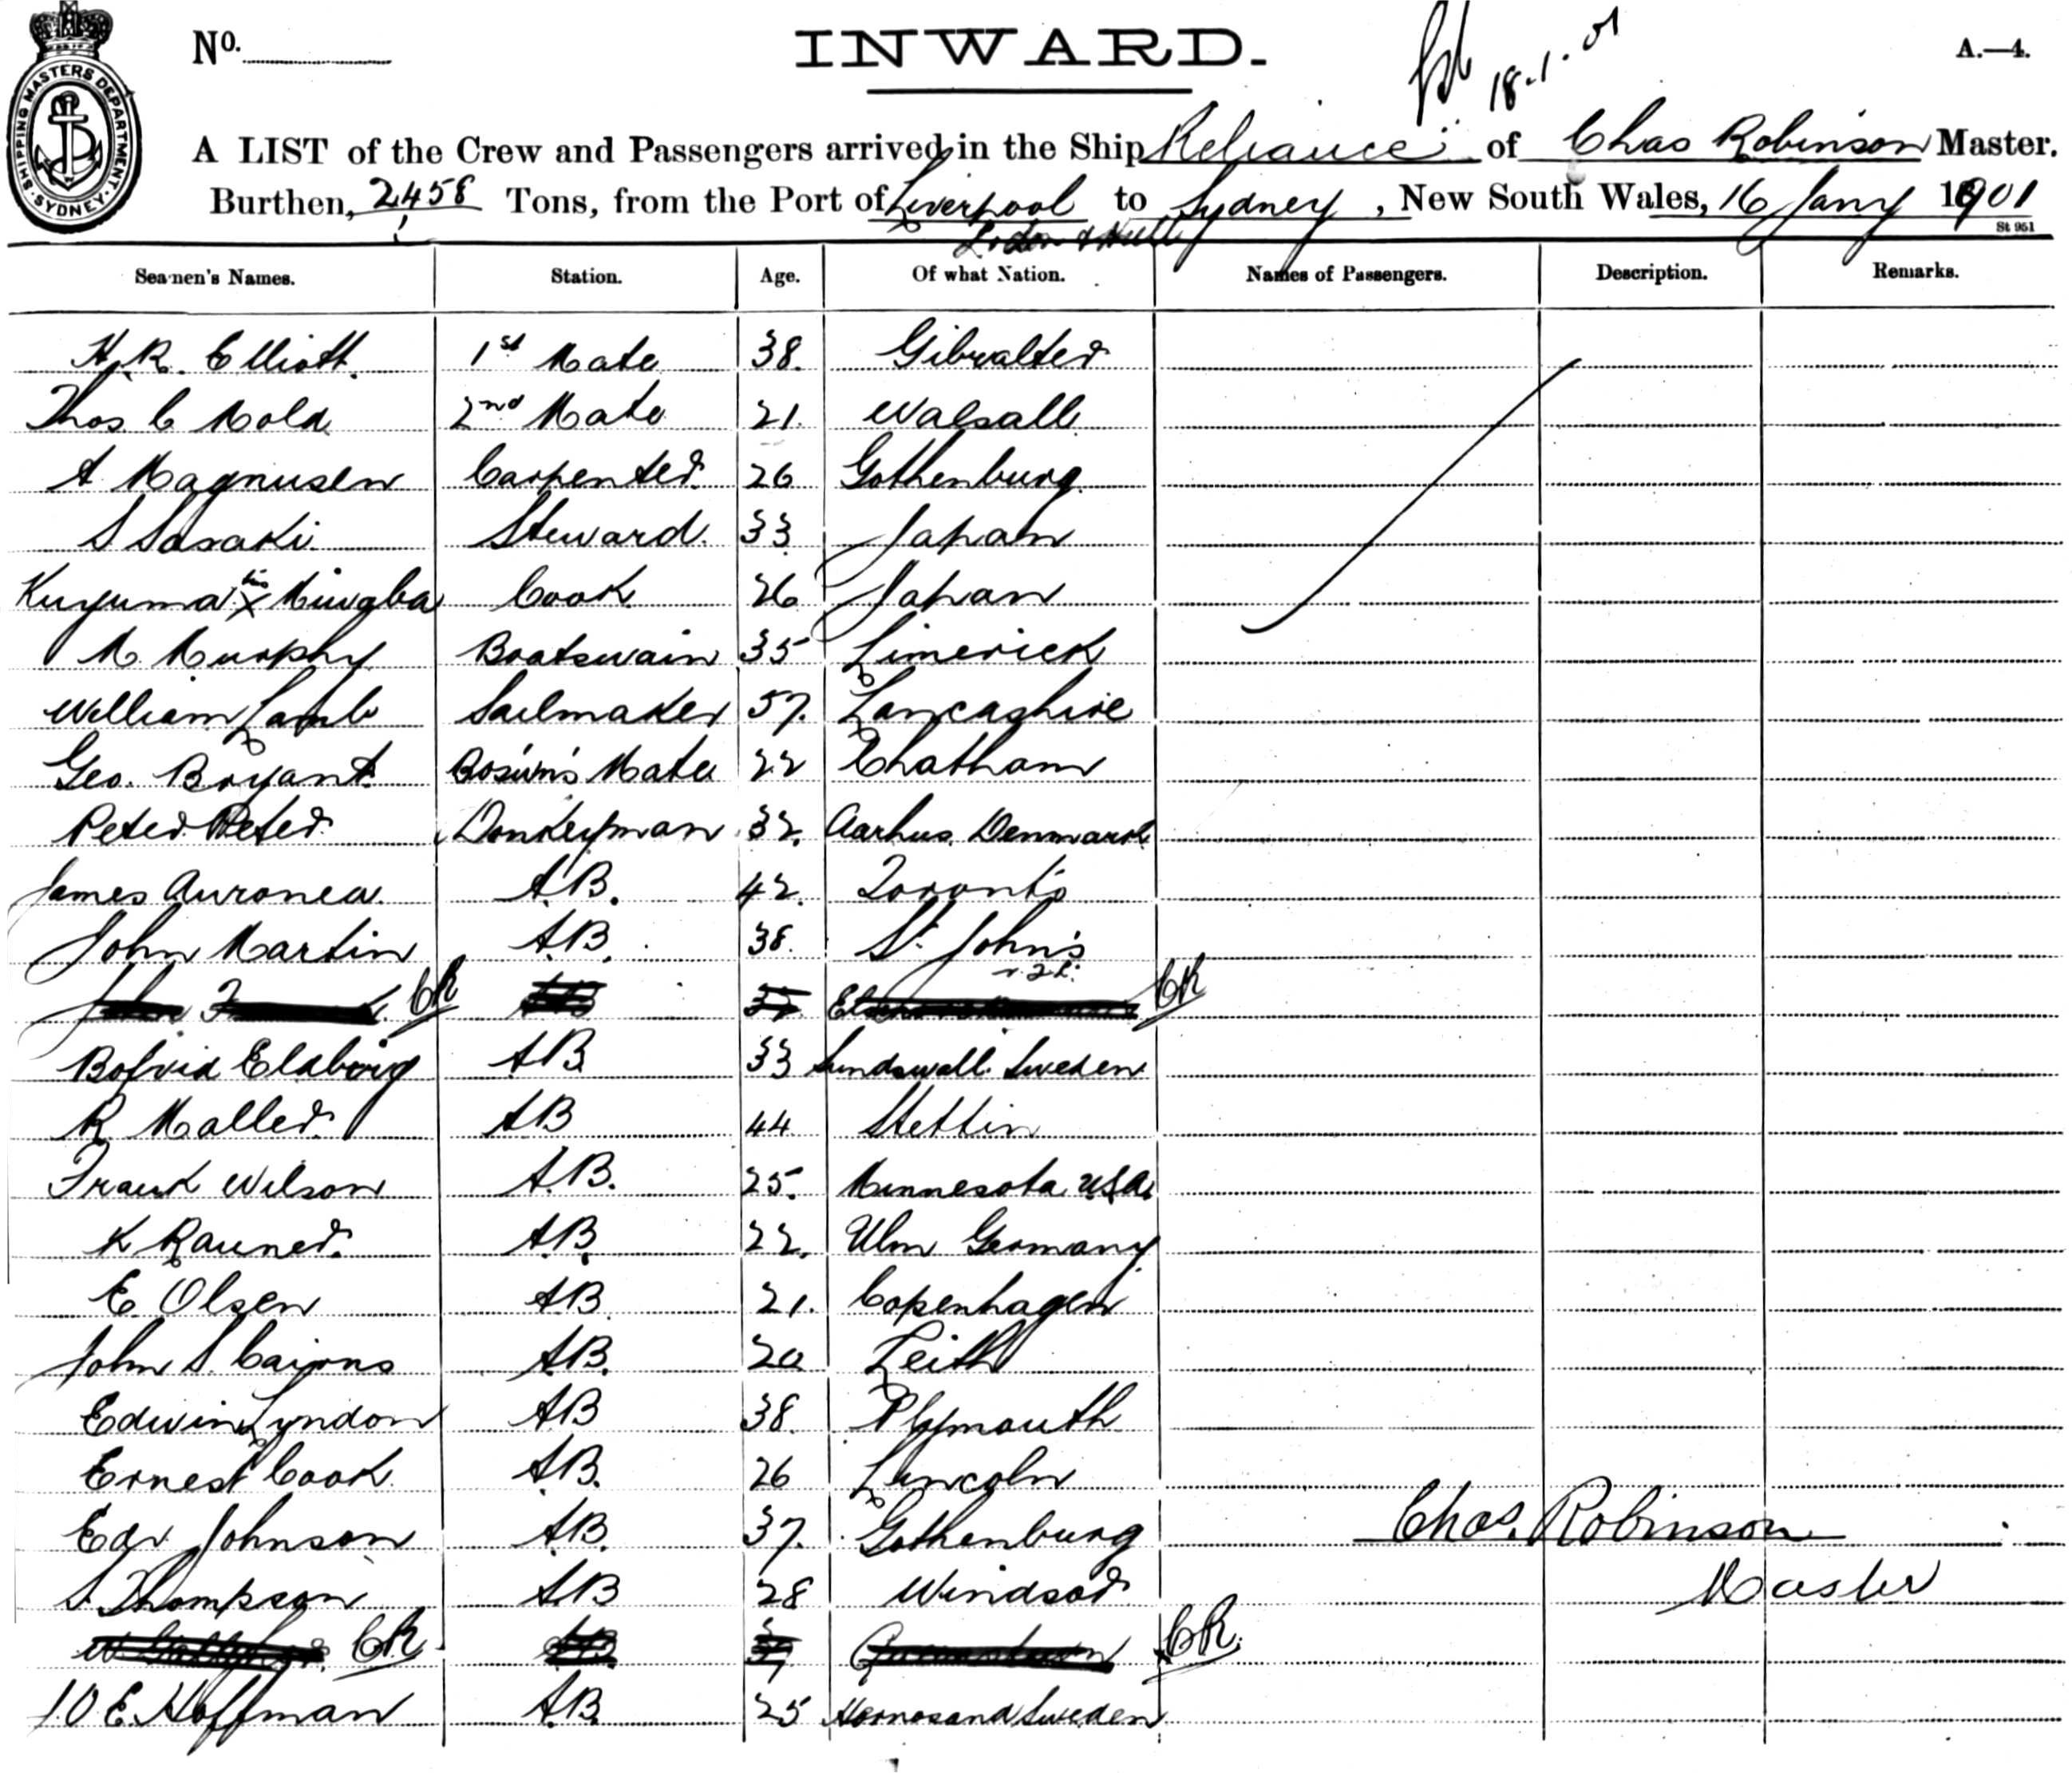 SHIPPING MASTERS DEPARTMENT. SYDNEY.
No.
INWARD.
18.1.01
A.—4.
A LIST of the Crew and Passengers arrived in the Ship Reliance of Chas Robinson Master.
Burthen, 2458 Tons, from the Port of Liverpool to Sydney, New South Wales, 16 Jany 1901
St 951
Seamen's Names. Station. Age. Of what Nation. Names of Passengers. Description. Remarks.
H.R. Elliott. 1st Mate 38. Gibralter
Thos C Mold 2nd Mate 21. Walsall
A Magnusen Carpenter 26 Gothenburg
S Sasaki Steward. 33 Japan
Kuyuma his x Cook 26 Japan
M Murphy Boatswain 35 Limerick
William Lamb Sailmaker 57. Lancashire
Geo. Bryant Bosun's Mate 22 Chatham
Peter Peter Donkeyman 32. Aarhus. Denmark
James A.B. 42. Toronto
John Martin A.B. 38. St John's
John CR CR
Eldborg AB 33 Sundswall. Sweden
R Maller AB 44 Stettin
Frank Wilson A.B. 25. Minnesota USA.
K Rauner. A.B. 22. Ulm Germany
E Olsen AB 21. Copenhagen
John S. Cairns A.B. 20 Leith
Edwin Lyndon AB 38. Plymouth
Ernest Cook A.B. 26 Lincoln
Edr Johnson A.B. 37. Gothenburg Chas. Robinson
S Thompson A.B 28 Windsor Master
CR CR.
E. Hoffman A.B. 25 Hernosand Sweden